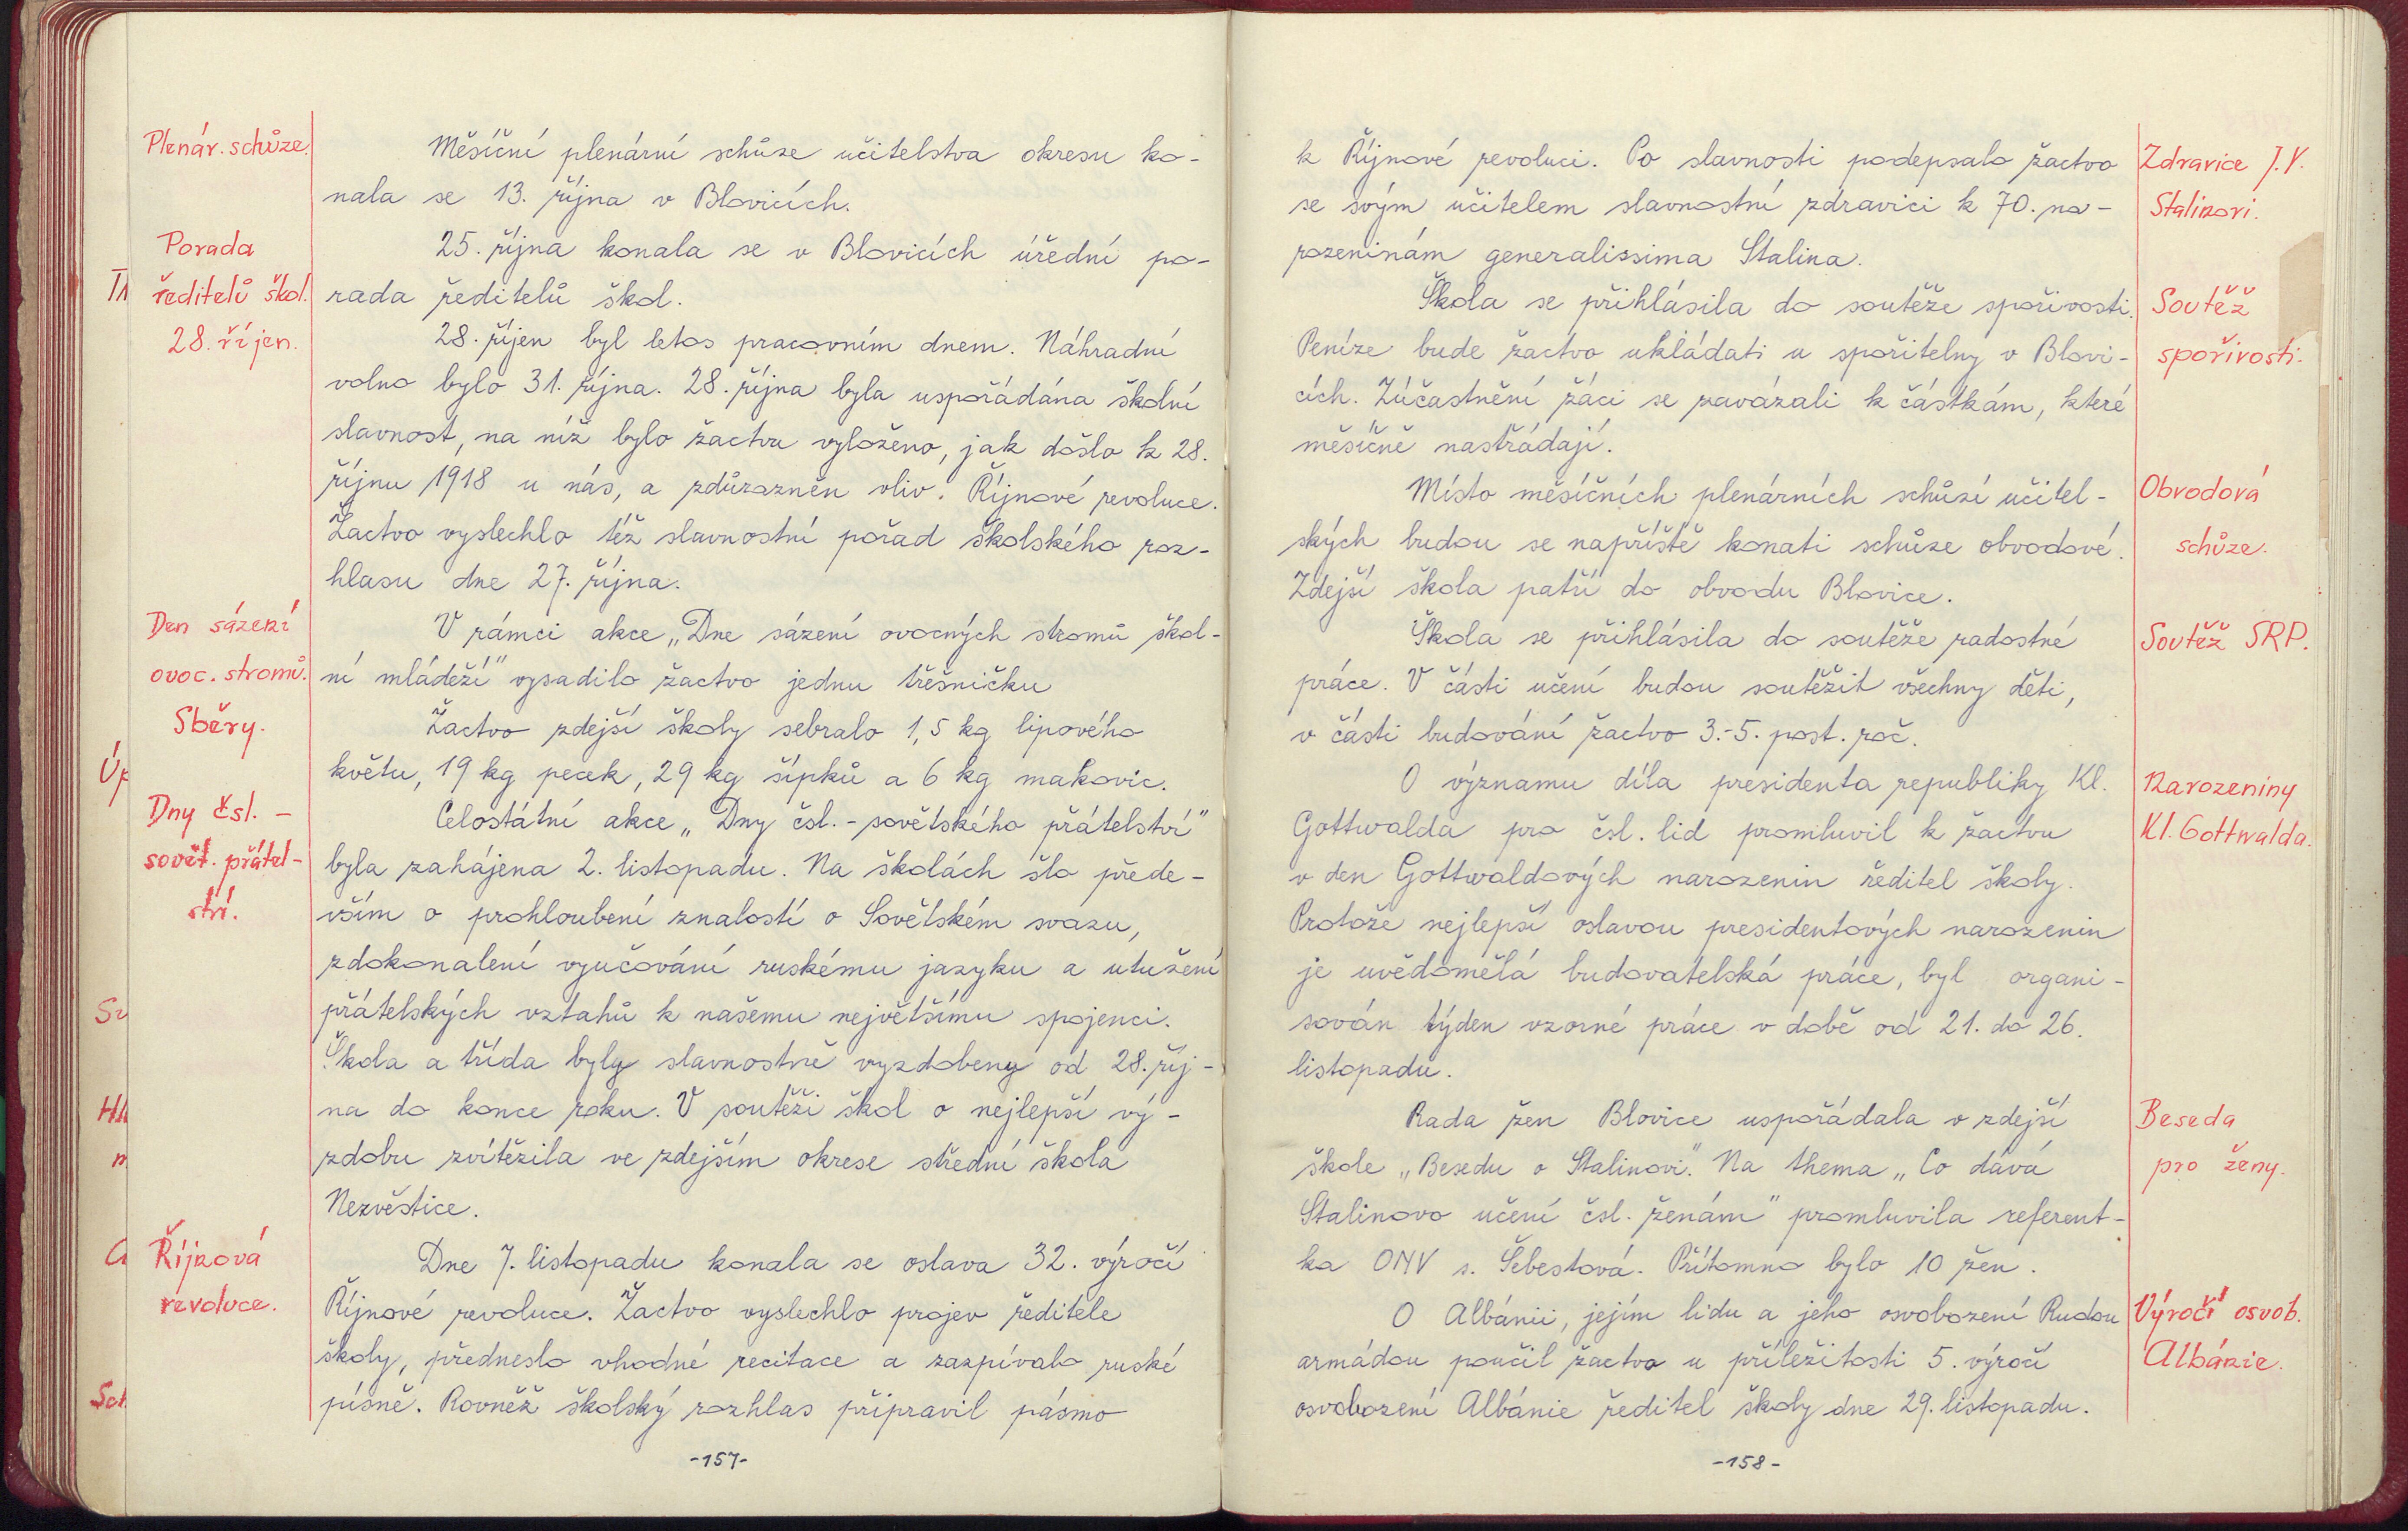 Plenár. schůze.
Měsíční plenární schůze učitelstva okresu ko-
nala se 13. října v Blovicích.
Porada
ředitelů škol.
25. října konala se v Blovicích úřední po-
rada ředitelů škol.
28. říjen.
28. říjen byl letos pracovním dnem. Náhradní
volno bylo 31. října. 28. října byla uspořádána školní
slavnost, na níž bylo žactvu vyloženo, jak došlo k 28.
říjnu 1918 u nás, a zdůrazněn vliv Říjnové revoluce.
Žactvo vyslechlo též slavnostní pořad školského roz-
hlasu dne 27. října.
Den sázení
ovoc. stromů.
V rámci akce „Dne sázení ovocných stromů škol-
ní mládeží" vysadilo žactvo jednu třešničku
Sběry.
Žactvo zdejší školy sebralo 1,5 kg lipového
květu, 19 kg pecek, 29 kg šípků a 6 kg makovic.
Dny čsl. -
sovět. přátel-
ství.
Celostátní akce „Dny čsl. - sovětského přátelství"
byla zahájena 2. listopadu. Na školách šlo přede-
vším o prohloubení znalostí o Sovětském svazu,
zdokonalení vyučování ruskému jazyku a utužení
přátelských vztahů k našemu největšímu spojenci.
Škola a třída byly slavnostně vyzdobeny od 28. říj-
na do konce roku. V soutěži škol o nejlepší vý-
zdobu zvítězila ve zdejším okrese střední škola
Nezvěstice.
Říjnová
revoluce.
Dne 7. listopadu konala se oslava 32. výročí
Říjnové revoluce. Žactvo vyslechlo projev ředitele
školy, předneslo vhodné recitace a zazpívalo ruské
písně. Rovněž školský rozhlas připravil pásmo
-157-
k Říjnové revoluci. Po slavnosti podepsalo žactvo
se svým učitelem slavnostní zdravici k 70. na-
rozeninám generalissima Stalina.
Zdravice J.V.
Stalinovi.
Škola se přihlásila do soutěže spořivosti.
Peníze bude žactvo ukládati u spořitelny v Blovi-
cích. Zúčastnění žáci se zavázali k částkám, které
měsíčně nastřádají.
Soutěž
spořivosti.
Místo měsíčních plenárních schůzí učitel-
ských budou se napříště konati schůze obvodové.
Zdejší škola patří do obvodu Blovice.
Obvodová
schůze.
Škola se přihlásila do soutěže radostné
práce. V části učení budou soutěžit všechny děti,
v části budování žactvo 3.-5. post. roč.
Soutěž SRP.
O významu díla presidenta republiky Kl.
Gottwalda pro čsl. lid promluvil k žactvu
v den Gottwaldových narozenin ředitel školy.
Protože nejlepší oslavou presidentových narozenin
je uvědomělá budovatelská práce, byl organi-
sován týden vzorné práce v době od 21. do 26.
listopadu.
Narozeniny
Kl. Gottwalda.
Rada žen Blovice uspořádala v zdejší
škole „Besedu o Stalinovi". Na thema „Co dává
Stalinovo učení čsl. ženám" promluvila referent-
ka ONV s. Šebestová. Přítomno bylo 10 žen.
Beseda
pro ženy.
O Albánii, jejím lidu a jeho osvobození Rudou
armádou poučil žactvo u příležitosti 5. výročí
osvobození Albánie ředitel školy dne 29. listopadu.
Výročí osvob.
Albánie.
-158-